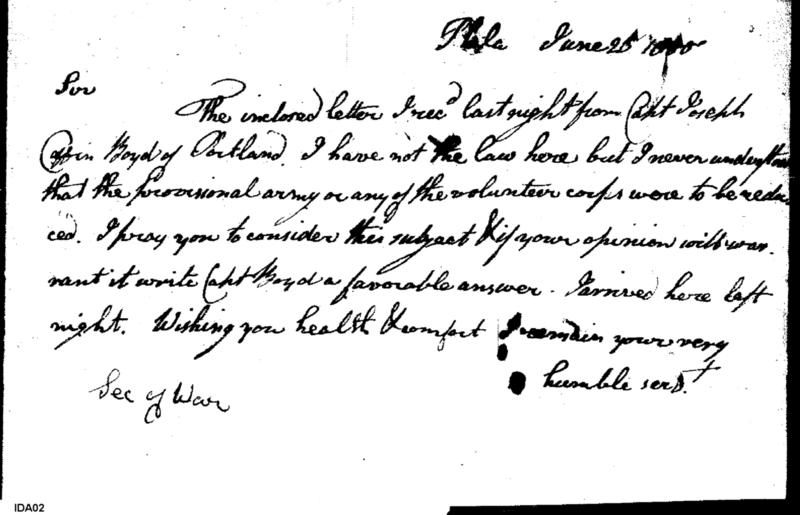 Phila June 25 1800
Sir
The inclosed letter I rec^d last night from Capt Joseph
Coffin Boyd of Portland. I have not the law here but I never understood
that the provisional army or any of the volunteer corps were to be redu-
ced. I pray you to consider this subject & if your opinion will war-
rant it write Capt Boyd a favorable answer. I arrived here last
night. Wishing you health & comfort I remain your very
humble serv.^t
Sec of War
IDA02